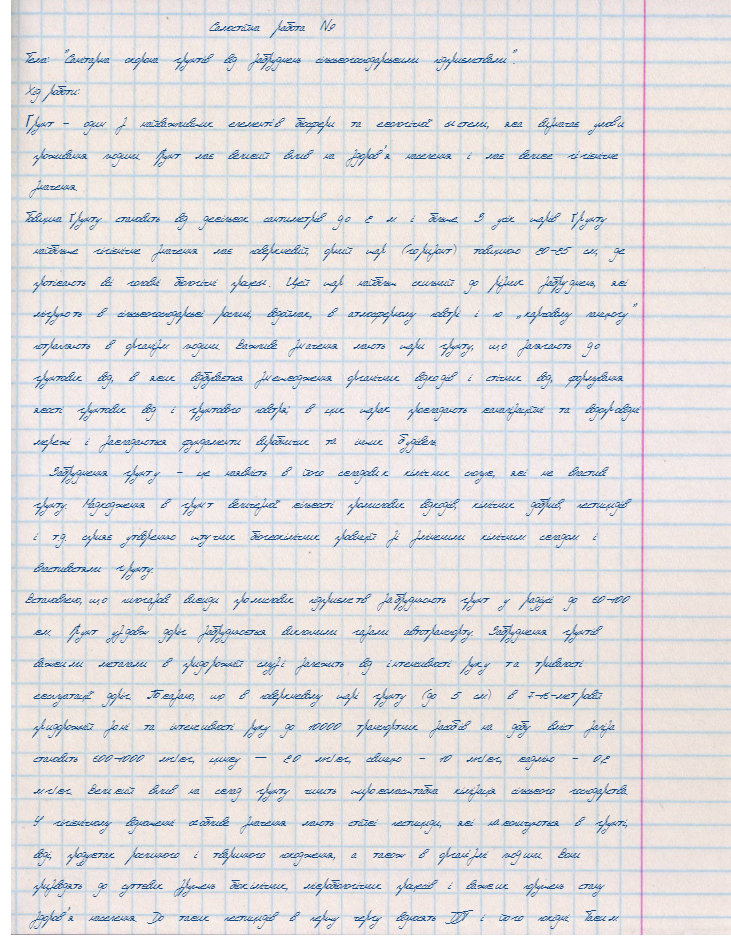 Самостійна робота №
Тема: "Санітарна охорона ґрунтів від забруднень сільськогосподарськими підприємствами".
Хід роботи:
Ґрунт – один з найважливіших елементів біосфери та екологічної системи, яка визначає умови
проживання людини. Ґрунт має великий вплив на здоров'я населення і має велике гігієнічне
значення.
Товщина ґрунту становить від декількох сантиметрів до 2 м і більше. З усіх шарів ґрунту
найбільше гігієнічне значення має поверхневий, орний шар (горизонт) товщиною 20-25 см, де
протікають всі головні біологічні процеси. Цей шар найбільш схильний до різних забруднень, які
мігрують в сільськогосподарські рослини, водойми, в атмосферному повітрі і по „харчовому ланцюгу"
потрапляють в організм людини. Важливе значення мають шари ґрунту, що залягають до
ґрунтових вод, в яких відбувається знешкодження органічних відходів і стічних вод, формування
якості ґрунтових вод і ґрунтового повітря; в цих шарах прокладають каналізаційні та водопровідні
мережі і закладаються фундаменти виробничих та інших будівель.
Забруднення ґрунту – це наявність в його складових хімічних сполук, які не властиві
ґрунту. Надходження в ґрунт величезної кількості промислових відходів, хімічних добрив, пестицидів
і т.д. сприяє утворенню штучних біогеохімічних провінцій зі зміненими хімічним складом і
властивостями ґрунту.
Встановлено, що пилогазові викиди промислових підприємств забруднюють ґрунт у радіусі до 60-100
км. Ґрунт уздовж доріг забруднюється вихлопними газами автотранспорту. Забруднення ґрунтів
важкими металами в придорожній смузі залежить від інтенсивності руху та тривалості
експлуатації доріг. Показано, що в поверхневому шарі ґрунту (до 5 см) в 7-15-метровій
придорожній зоні та інтенсивності руху до 10000 транспортних засобів на добу вміст заліза
становить 600-1000 мг/кг, цинку — 20 мг/кг, свинцю – 10 мг/кг, кадмію – 0,2
мг/кг. Великий вплив на склад ґрунту чинить широкомасштабна хімізація сільського господарства.
У гігієнічному відношенні особливе значення мають стійкі пестициди, які накопичуються в ґрунті,
воді, продуктах рослинного і тваринного походження, а також в організмі людини. Вони
призводять до суттєвих зрушень біохімічних, мікробіологічних процесів і важких порушень стану
здоров'я населення. До таких пестицидів в першу чергу відносять ДДТ і його похідні. Таким